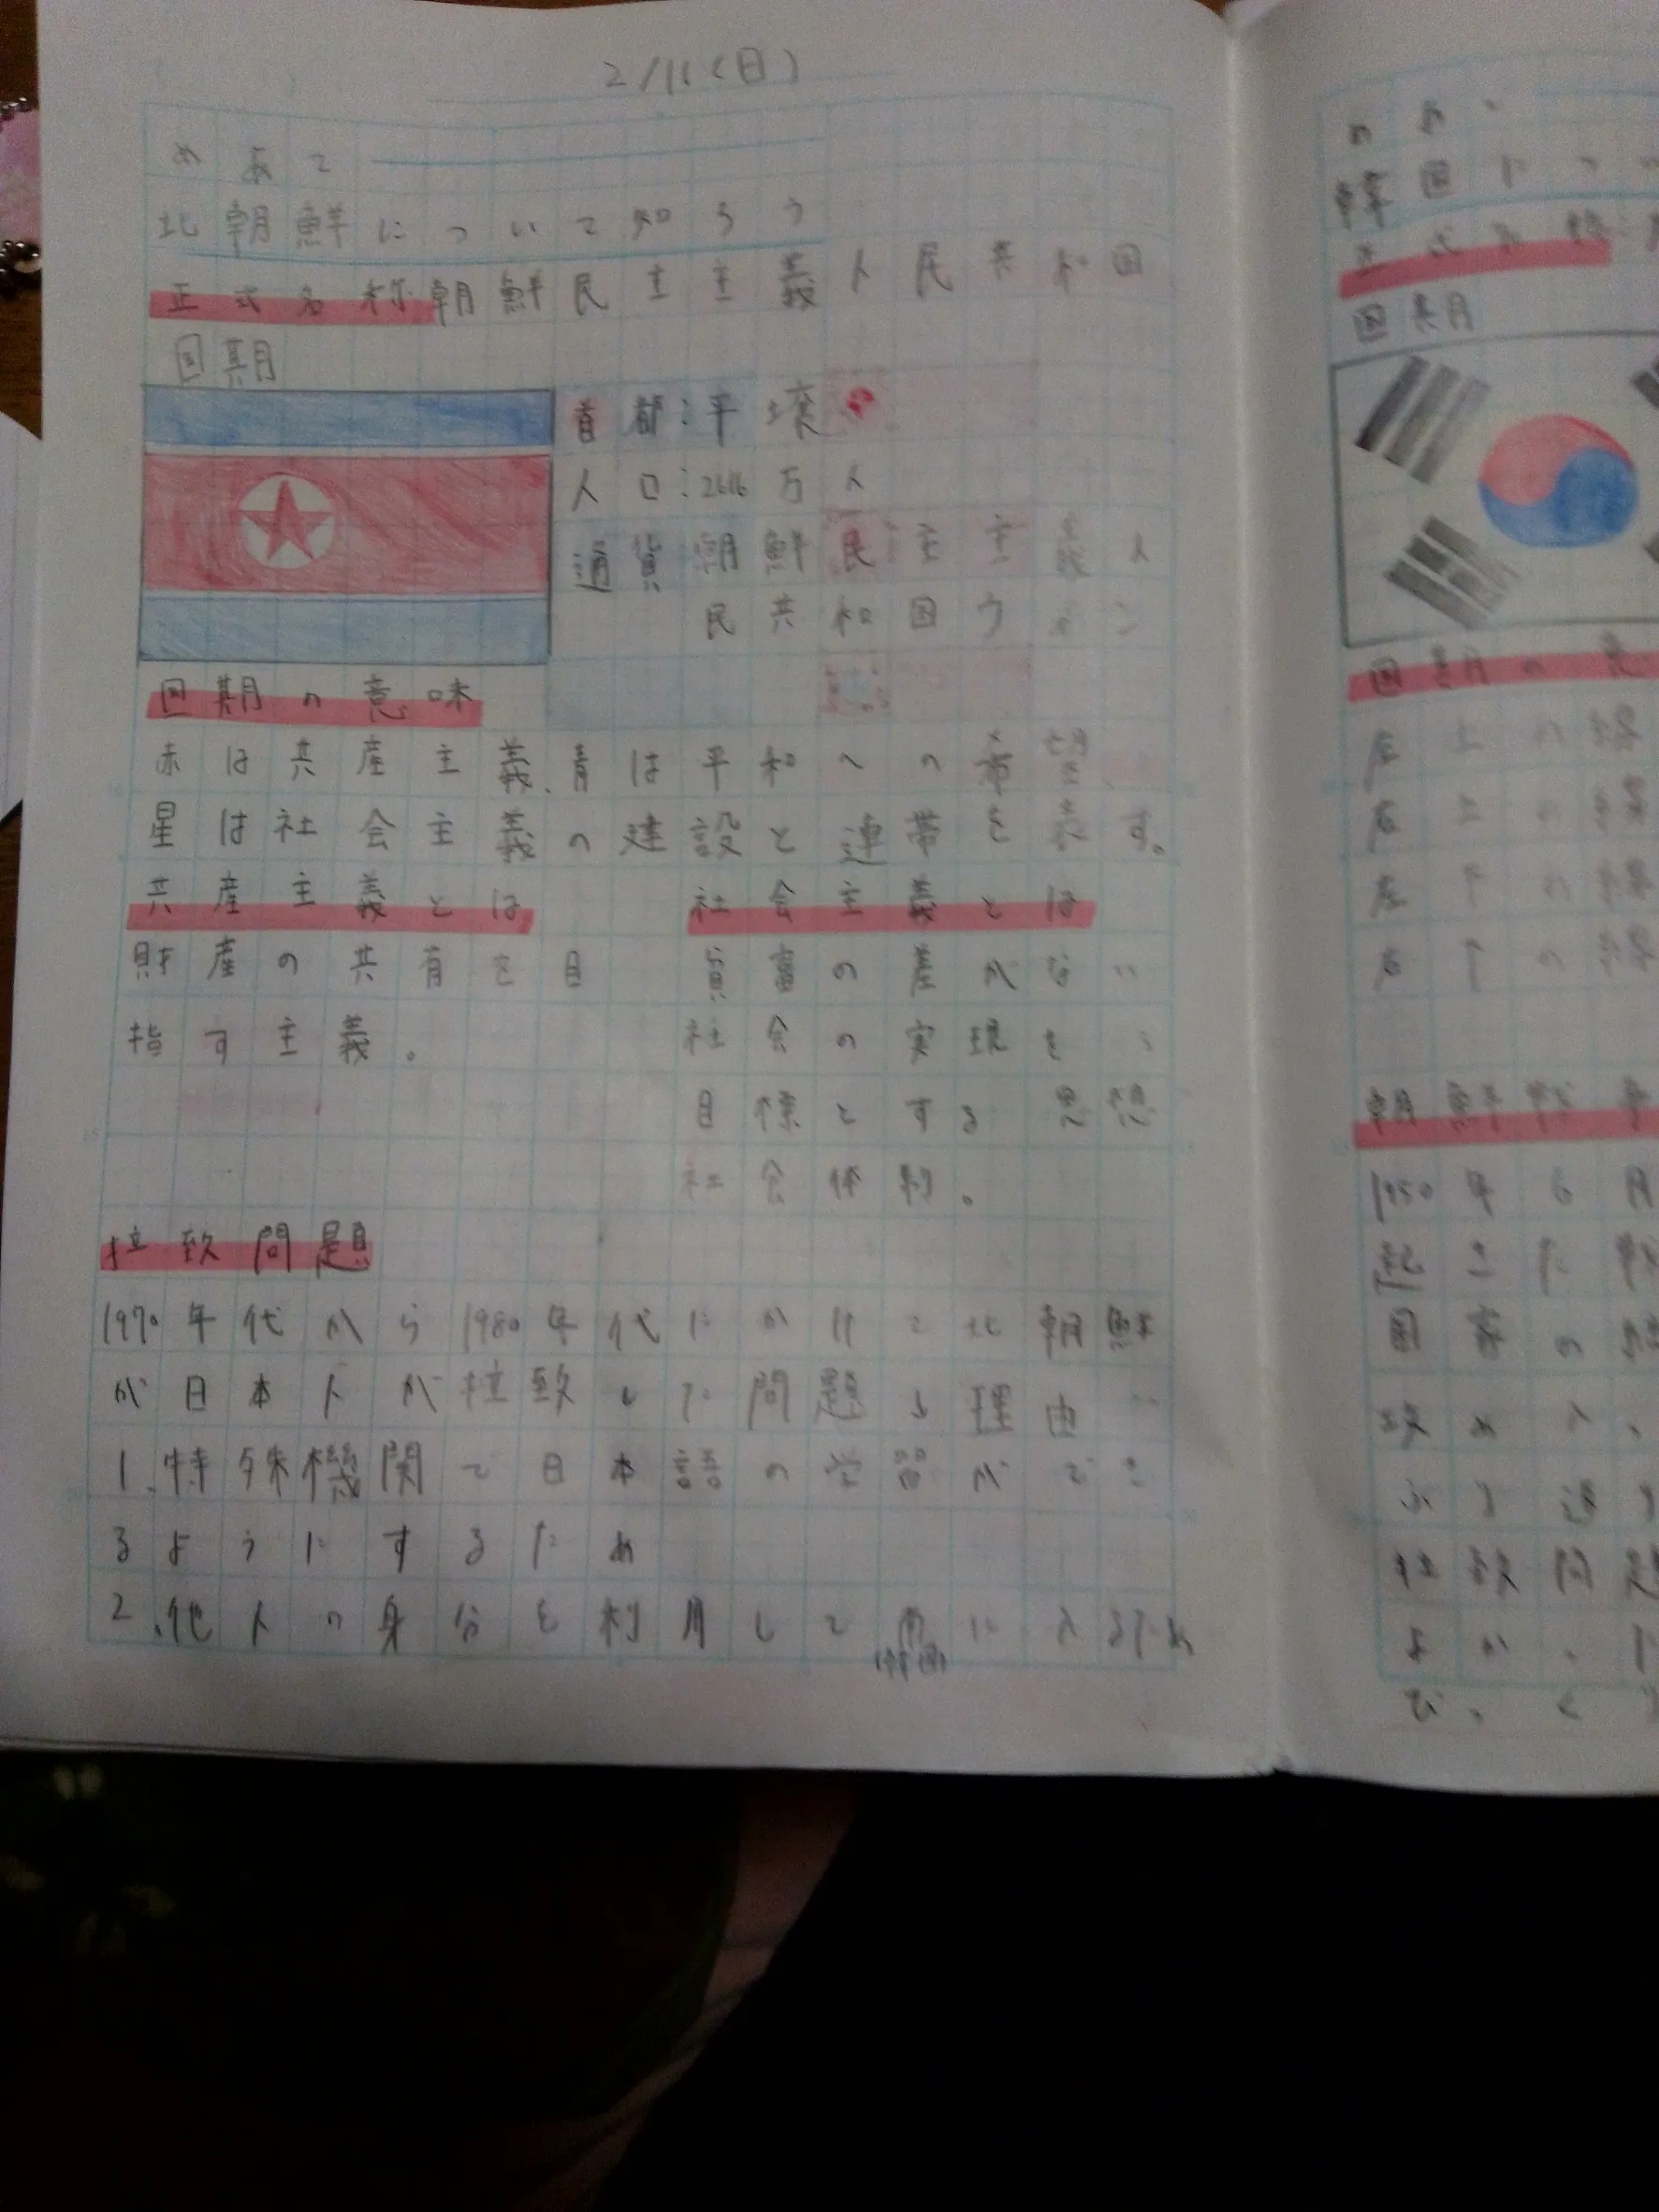 2/11(日)
めあて
北朝鮮について知ろう
正式名称朝鮮民主主義人民共和国
国期
首都:平壌
人口:2616万人
通貨朝鮮民主主義人
民共和国ウォン
国期の意味
赤は共産主義、青は平和への希望、
星は社会主義の建設と連帯を表す。
共産主義とは
財産の共有を目
指す主義。
社会主義とは
貧富の差がない
社会の実現を
目標とする思想
社会体制。
拉致問題
1970年代から1980年代にかけて北朝鮮
が日本人が拉致した問題。理由…
1.特殊機関で日本語の学習ができ
るようにするため
2.他人の身分を利用して南に入るため
(韓国)
めあ
韓国につい
正式名称
国期
国期の意
左上の線
右上の線
左下の線
右下の線
朝鮮戦争
1950年6月
起こた
国家の
攻め入
拉致問題